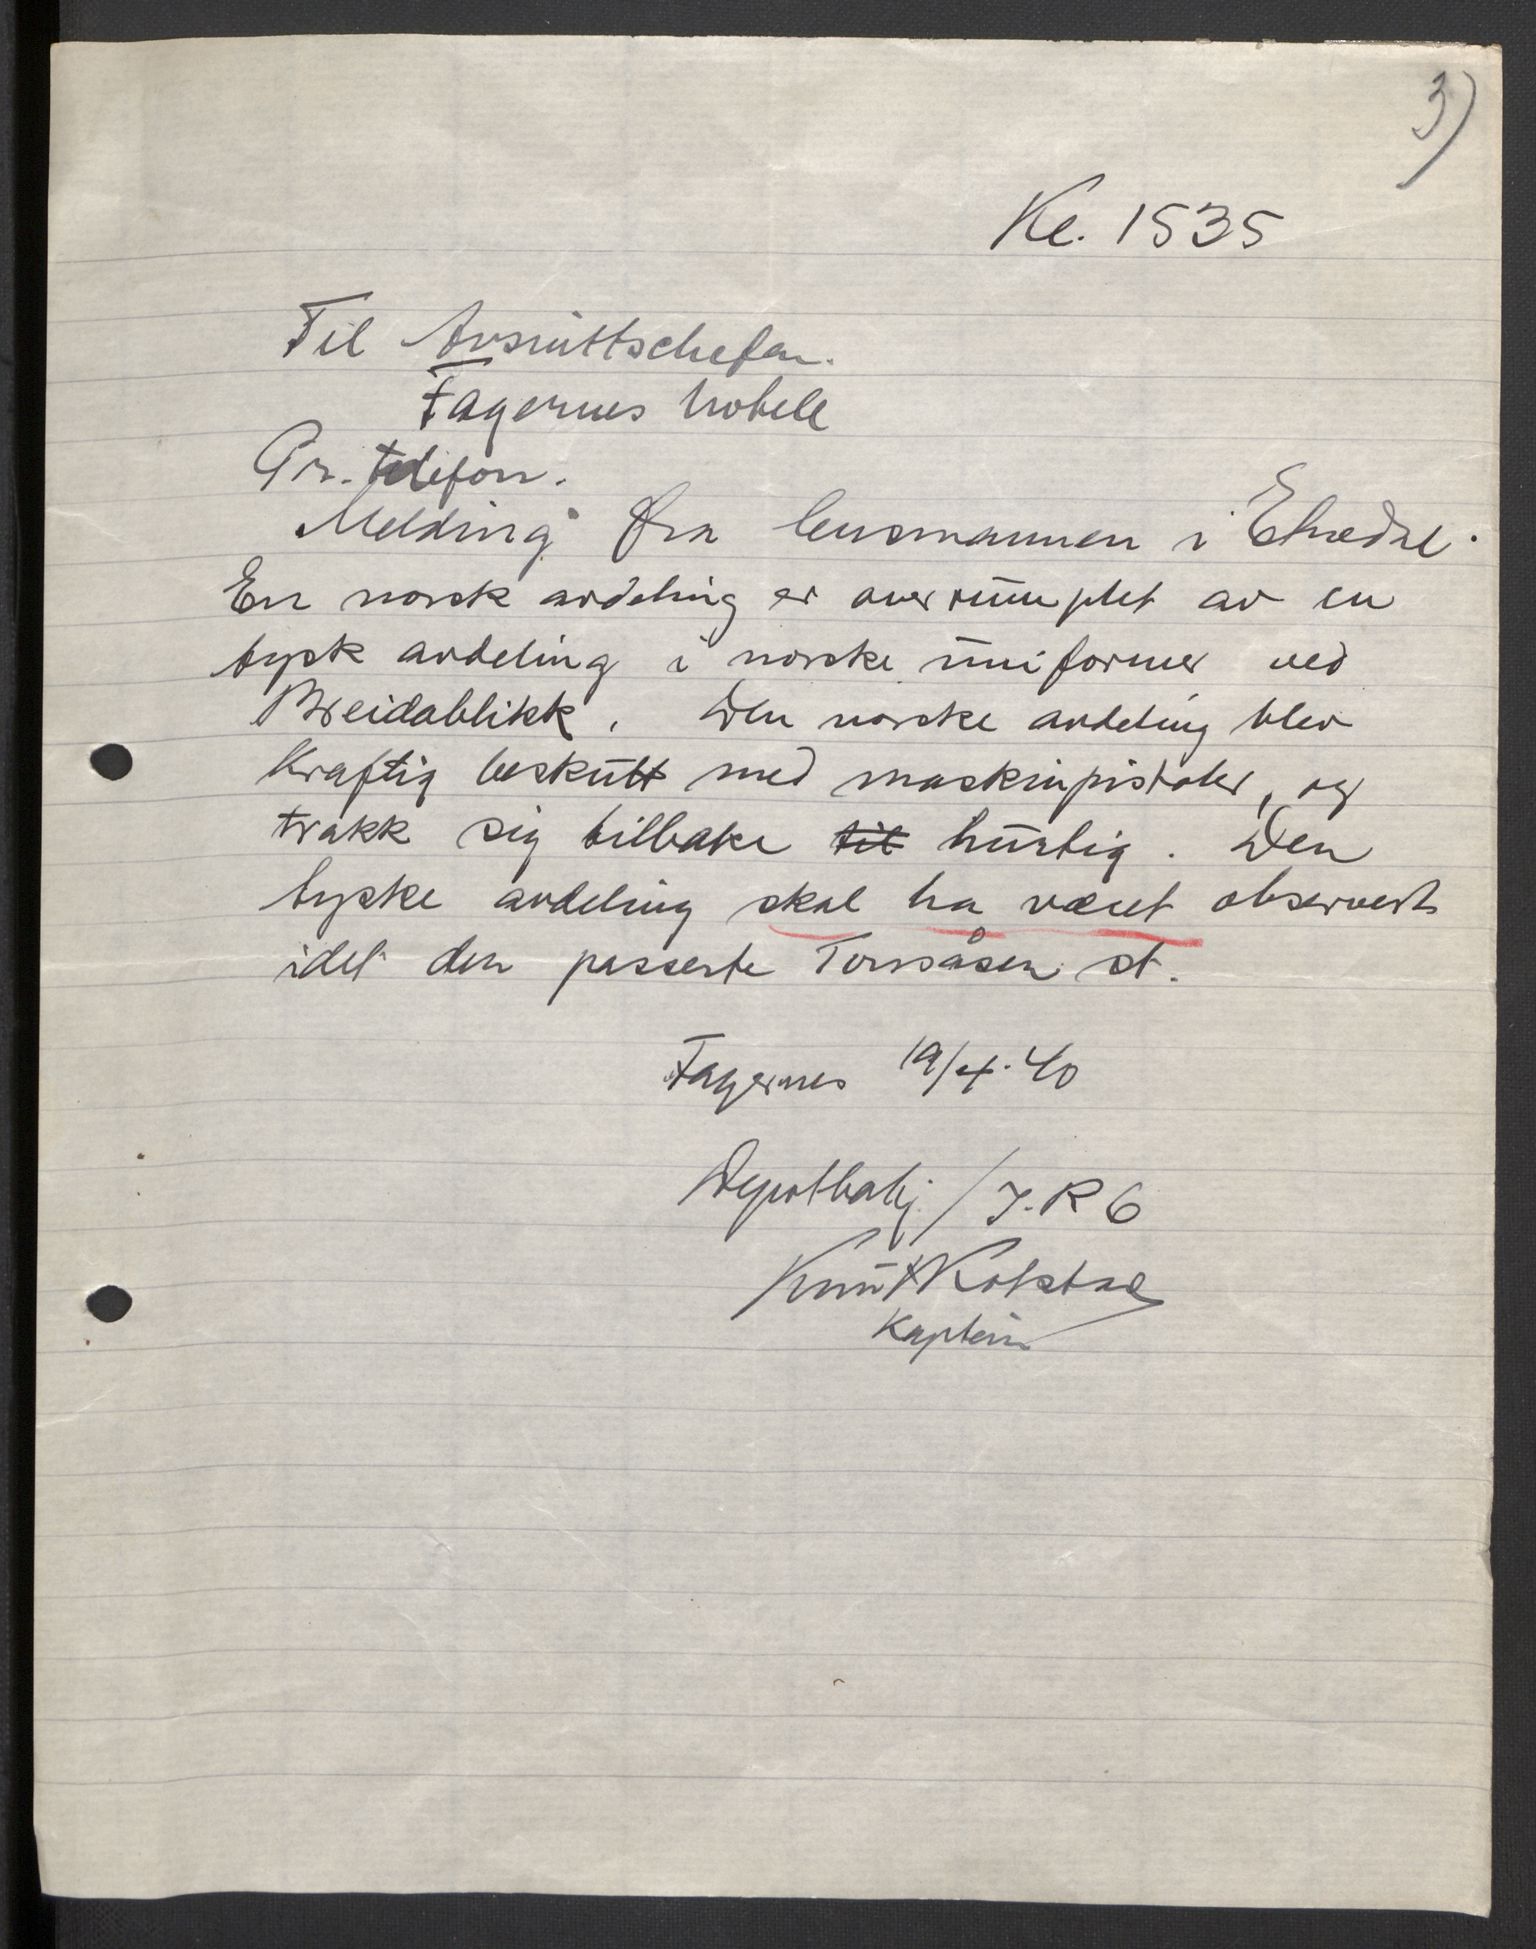 3)
Kl. 1535
Til Avsnittschefen.
Fagernes hotell
Pr. telefon.
Melding fra lensmannen i Etnedal.
En norsk avdeling er overrumplet av en
tysk avdeling i norske uniformer ved
Breidablikk. Den norske avdeling blev
kraftig beskutt med maskinpistoler, og
trakk sig tilbake til hurtig. Den
tyske avdeling skal ha været observert
idet den passerte Tonsåsen st.
Fagernes 19/4.40
Depotbatj. / I.R 6
Knut Kolstad
Kaptein